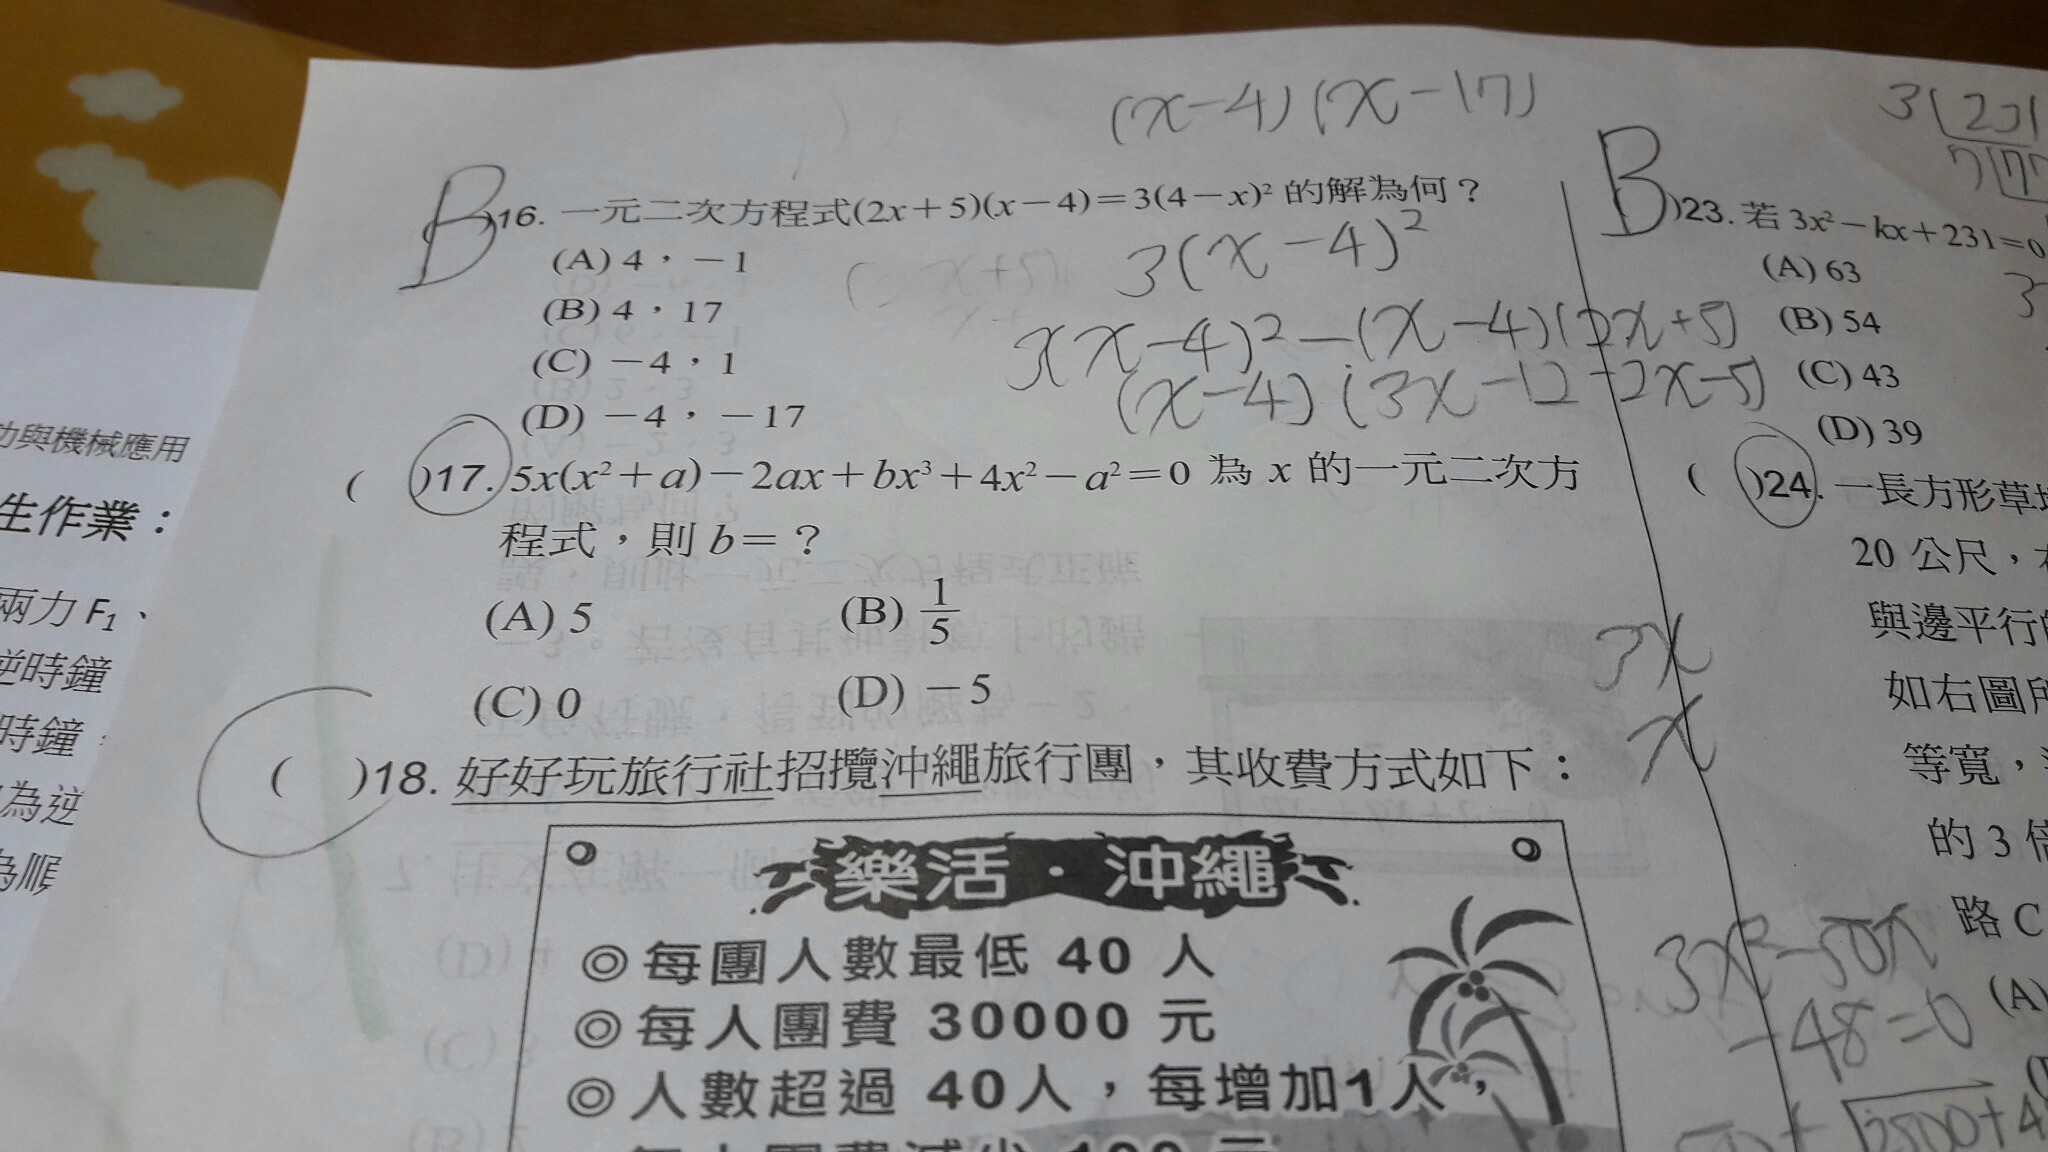 (x-4)(x-17)
B )16. 一元二次方程式(2x+5)(x-4)=3(4-x)² 的解為何？
(A) 4，-1
(B) 4，17
(C) -4，1
(D) -4，-17
3(x-4)²
3(x-4)²-(x-4)(2x+5)
(x-4)(3x-12-2x-5)
( )17. 5x(x²+a)-2ax+bx³+4x²-a²=0 為 x 的一元二次方
程式，則 b=？
(A) 5
(B) 1/5
(C) 0
(D) -5
( )18. 好好玩旅行社招攬沖繩旅行團，其收費方式如下：
樂活．沖繩
◎每團人數最低 40 人
◎每人團費 30000 元
◎人數超過 40人，每增加1人，
3x
x
B )23. 若 3x²-kx+231=0
(A) 63
(B) 54
(C) 43
(D) 39
( )24. 一長方形草
20 公尺，
與邊平行
如右圖
等寬，
的 3
路 C
(A)
3x²-50x
-48=0
與機械應用
生作業：
兩力 F₁、
逆時鐘
時鐘
為逆
為順